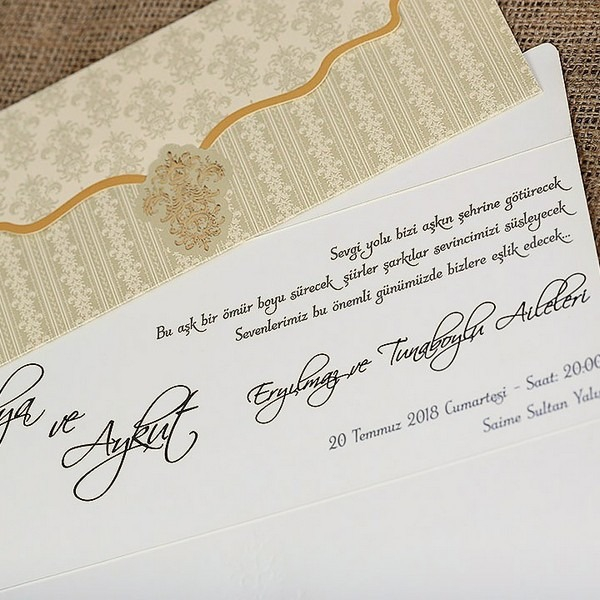 Sevgi yolu bizi aşkın şehrine götürecek
Bu aşk bir ömür boyu sürecek şiirler şarkılar sevincimizi süsleyecek
Sevenlerimiz bu önemli günümüzde bizlere eşlik edecek...
ve Aykut
Eryılmaz ve Tunaboylu Aileleri
20 Temmuz 2018 Cumartesi - Saat: 20:00
Saime Sultan